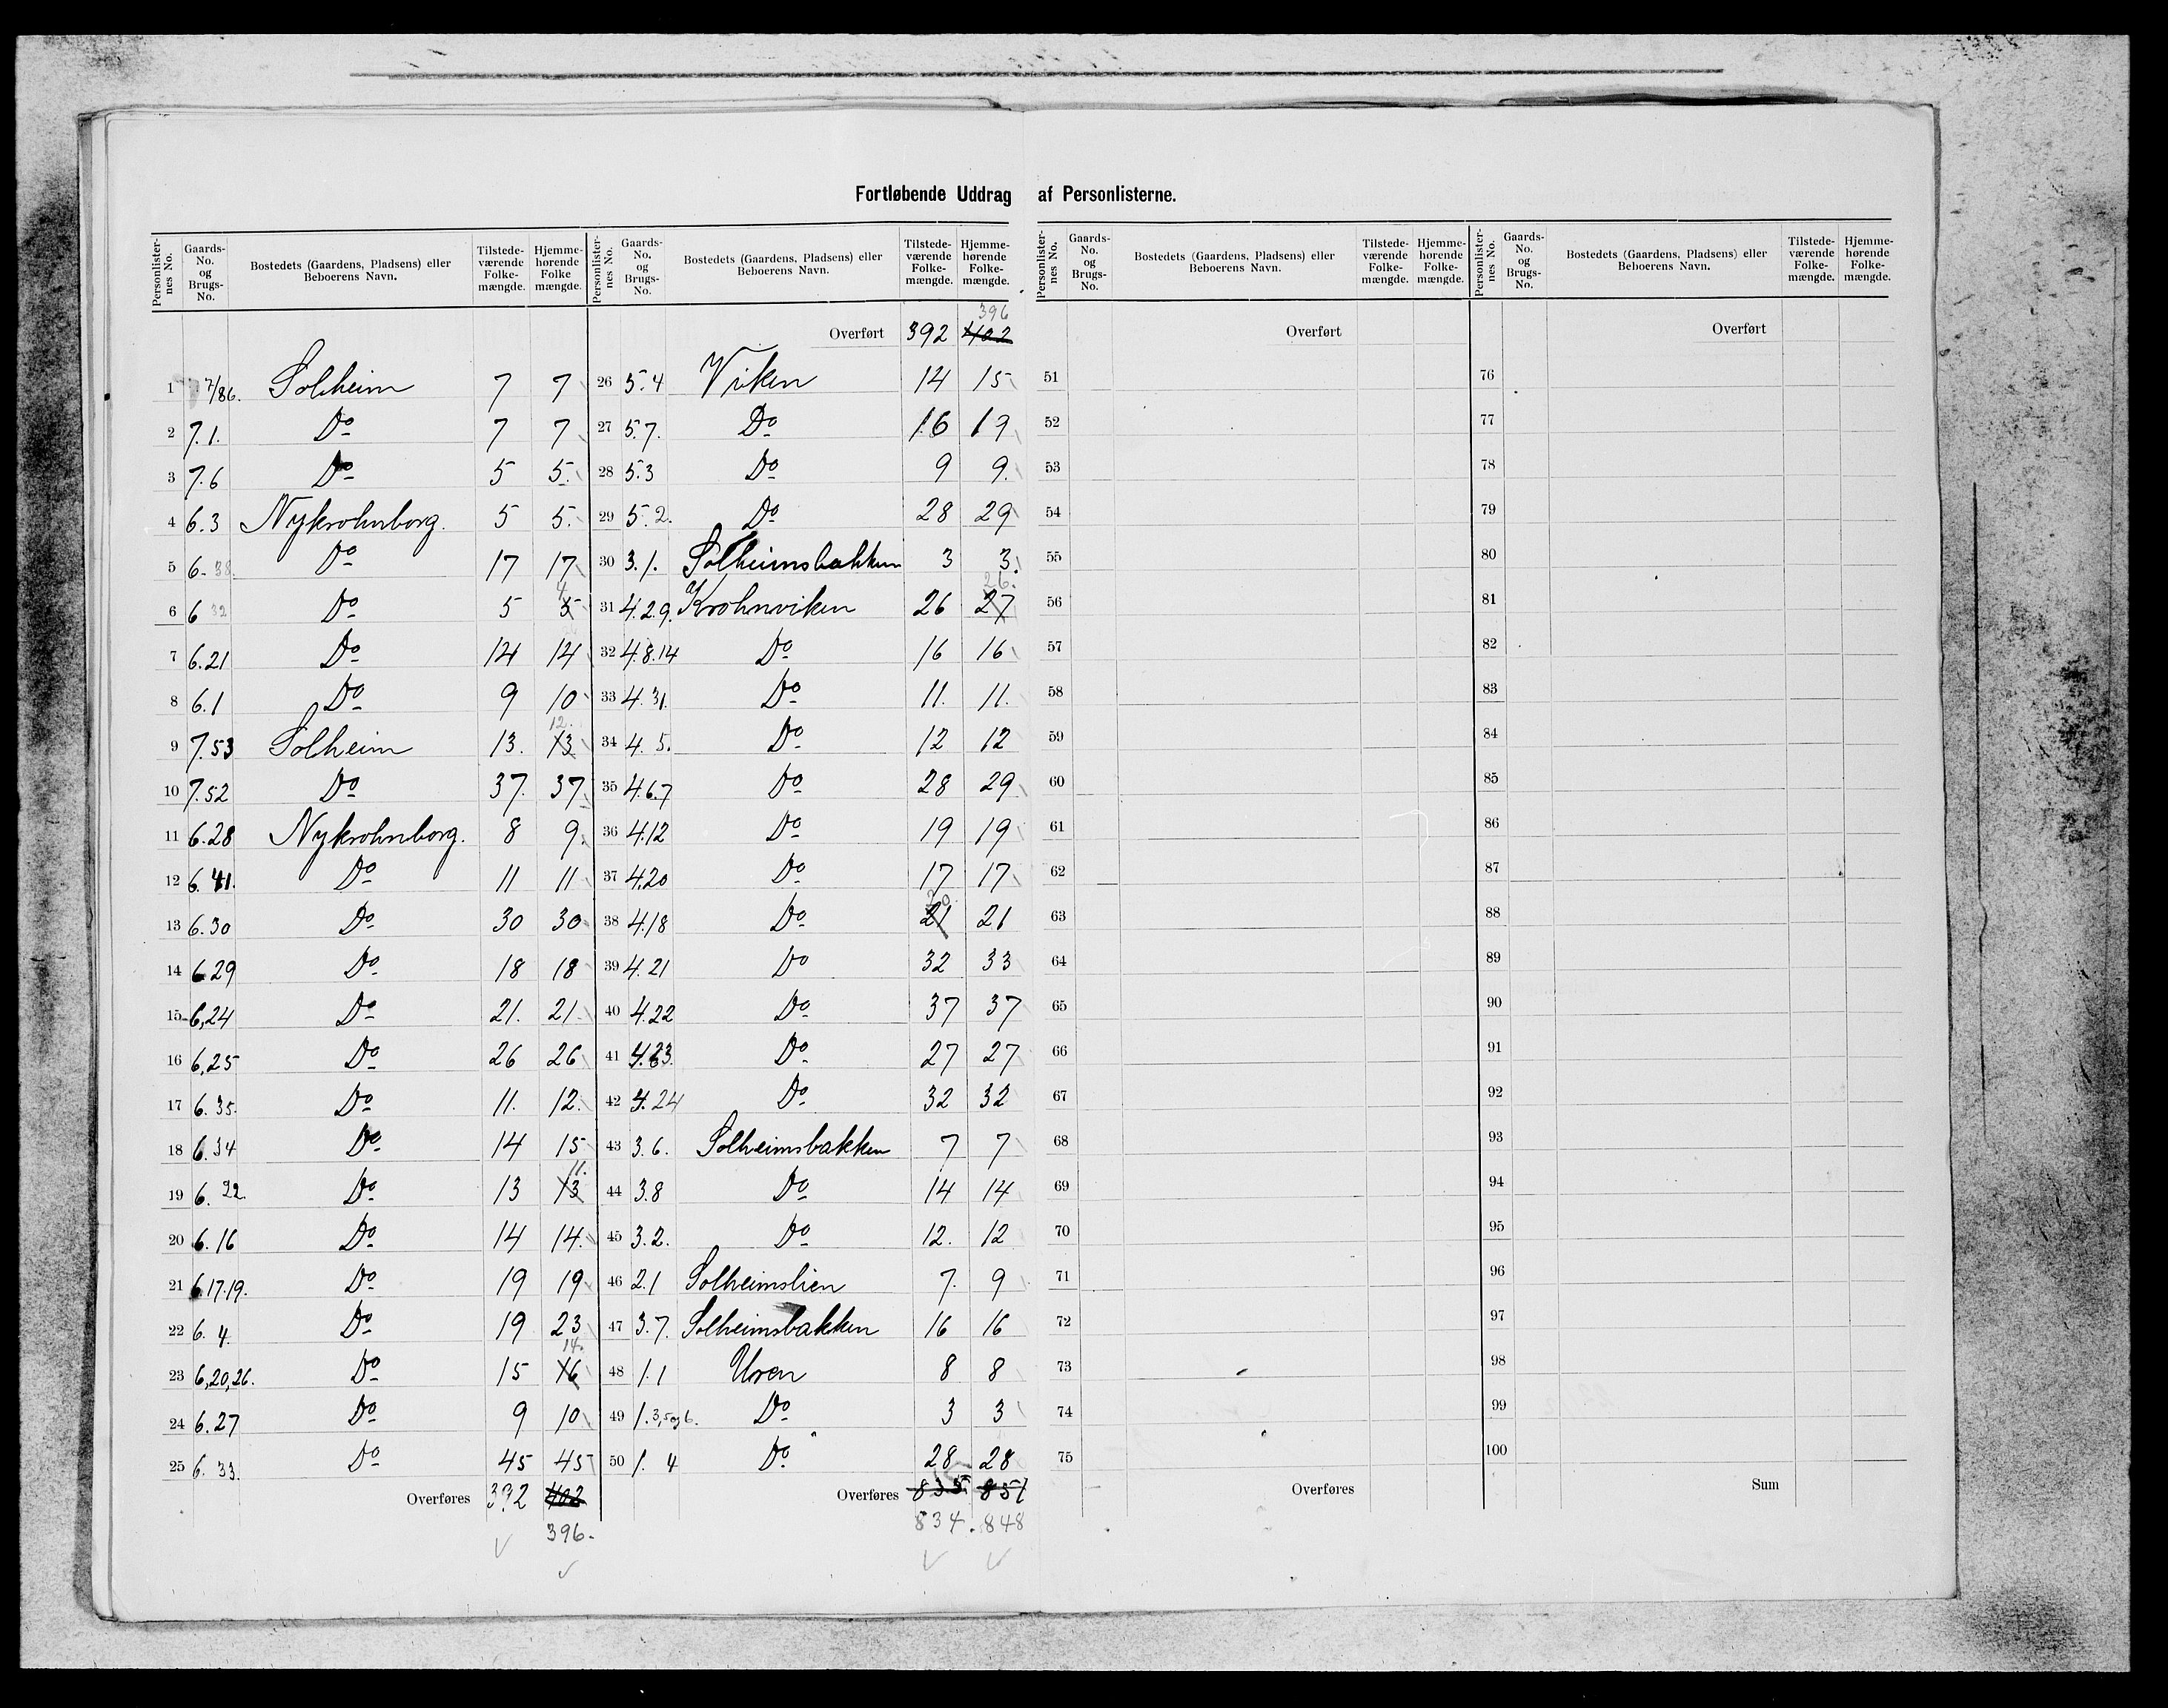 Fortløbende Uddrag af Personlisterne.
Personlister-nes No. Gaards-No. og Brugs-No. Bostedets (Gaardens, Pladsens) eller Beboerens Navn. Tilstede-værende Folke-mængde. Hjemme-hørende Folke mængde.
1 7/86. Solheim 7 7
2 7.1. Do 7 7
3 7.6 Do 5 5.
4 6.3 Nykrohnborg. 5 5.
5 6.38. Do 17 17
6 6 32 Do 5 5 4
7 6.21 Do 14 14
8 6.1 Do 9 10
9 7.53 Solheim 13. 13 12.
10 7.52 Do 37. 37
11 6.28 Nykrohnborg. 8 9.
12 6.41. Do 11 11
13 6.30 Do 30 30
14 6.29 Do 18 18
15 6,24 Do 21. 21
16 6,25 Do 26 26
17 6.35. Do 11. 12.
18 6.34 Do 14 15
19 6. 22. Do 13 13 11.
20 6.16 Do 14 14.
21 6.17.19. Do 19 19
22 6. 4. Do 19 23
23 6,20,26. Do 15 16 14.
24 6.27 Do 9 10
25 6. 33. Do 45 45
Overføres 392 402
396.
Personlister-nes No. Gaards-No. og Brugs-No. Bostedets (Gaardens, Pladsens) eller Beboerens Navn. Tilstede-værende Folke-mængde. Hjemme-hørende Folke-mængde.
396
Overført 392 402
26 5.4 Viken 14 15
27 5.7. Do 16 19
28 5.3 Do 9 9.
29 5.2. Do 28 29
30 3.1. Solheimsbakken 3 3.
31 4.2.9. Krohnviken 26 27 26.
32 4.8.14 Do 16 16
33 4.31. Do 11. 11.
34 4. 5. Do 12 12
35 4.6.7 Do 28 29
36 4.12 Do 19 19
37 4.20 Do 17 17
38 4.18 Do 21 20. 21
39 4.21 Do 32 33
40 4.22 Do 37 37
41 4.23. Do 27 27
42 4.24 Do 32 32
43 3.6. Solheimsbakken 7 7
44 3.8 Do 14 14
45 3.2. Do 12. 12
46 2.1 Solheimslien 7. 9
47 3.7. Solheimsbakken 16 16
48 1.1 Uren 8 8
49 1.3,5og6. Do 3 3
50 1. 4 Do 28 28
Overføres 835 851
834. 848
Personlister-nes No. Gaards-No. og Brugs-No. Bostedets (Gaardens, Pladsens) eller Beboerens Navn. Tilstede-værende Folke-mængde. Hjemme-hørende Folke-mængde.
Overført
51
52
53
54
55
56
57
58
59
60
61
62
63
64
65
66
67
68
69
70
71
72
73
74
75
Overføres
Personlister-nes No. Gaards-No. og Brugs-No. Bostedets (Gaardens, Pladsens) eller Beboerens Navn. Tilstede-værende Folke-mængde. Hjemme-hørende Folke-mængde.
Overført
76
77
78
79
80
81
82
83
84
85
86
87
88
89
90
91
92
93
94
95
96
97
98
99
100
Sum